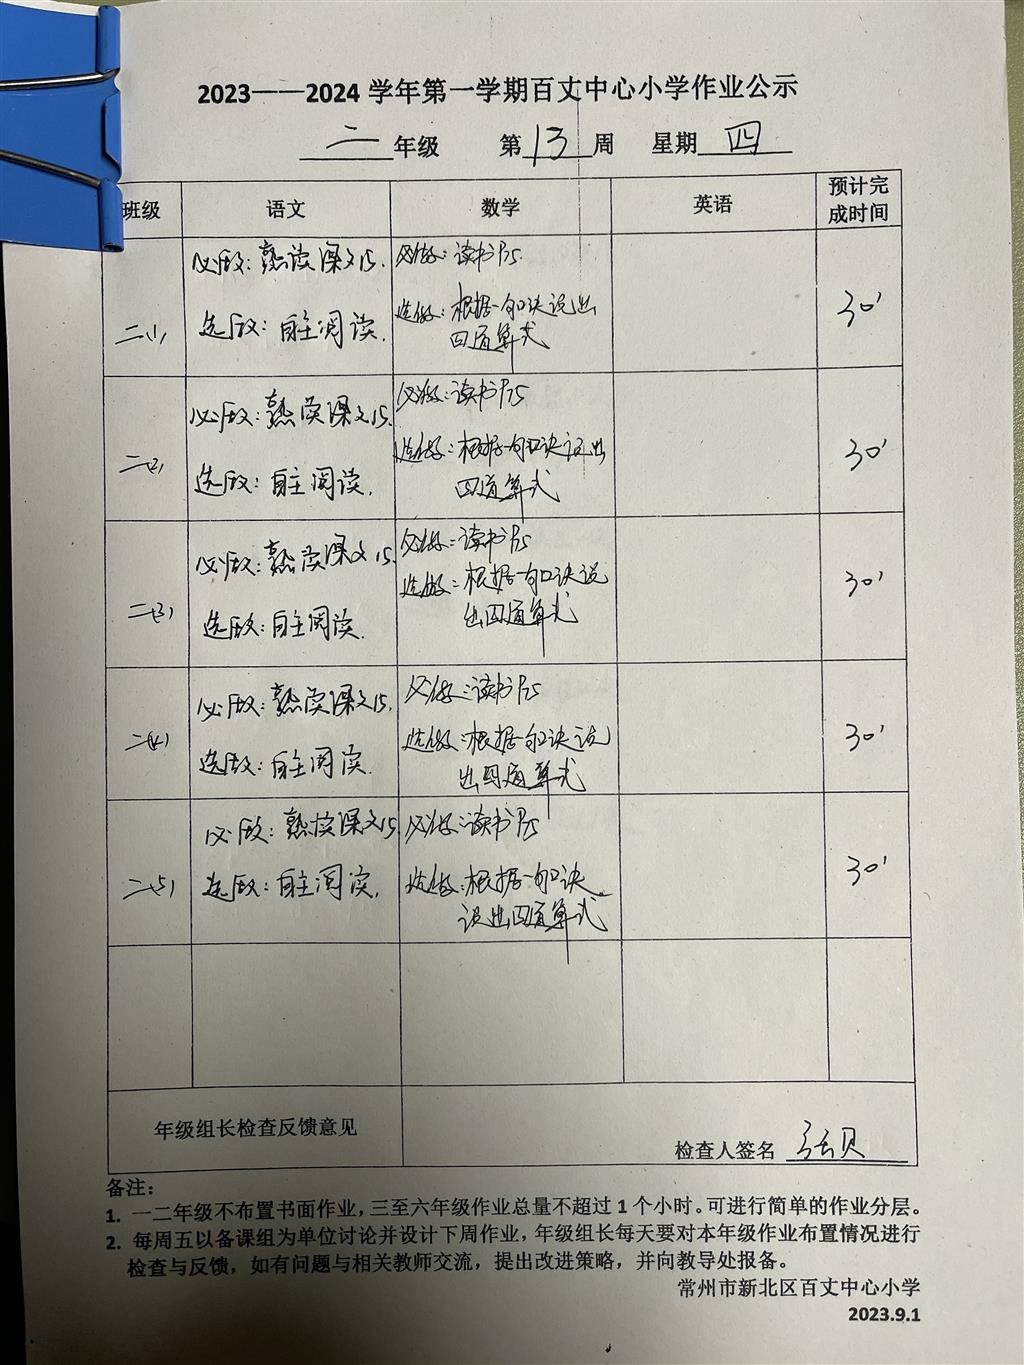 2023——2024 学年第一学期百丈中心小学作业公示
二 年级 第 13 周 星期 四
班级 语文 数学 英语 预计完成时间
必做：熟读课文15. 必做：读书P75
二(1) 选做：自主阅读. 选做：根据一句口诀说出 30'
四道算式
必做：熟读课文15. 必做：读书P75
二(2) 选做：自主阅读. 选做：根据一句口诀说出 30'
四道算式
必做：熟读课文15. 必做：读书P75
二(3) 选做：自主阅读. 选做：根据一句口诀说 30'
出四道算式
必做：熟读课文15. 必做：读书P75
二(4) 选做：自主阅读. 选做：根据一句口诀说 30'
出四道算式
必做：熟读课文15. 必做：读书P75
二(5) 选做：自主阅读. 选做：根据一句口诀 30'
说出四道算式
年级组长检查反馈意见
检查人签名
备注：
1. 一二年级不布置书面作业，三至六年级作业总量不超过 1 个小时。可进行简单的作业分层。
2. 每周五以备课组为单位讨论并设计下周作业，年级组长每天要对本年级作业布置情况进行
检查与反馈，如有问题与相关教师交流，提出改进策略，并向教导处报备。
常州市新北区百丈中心小学
2023.9.1